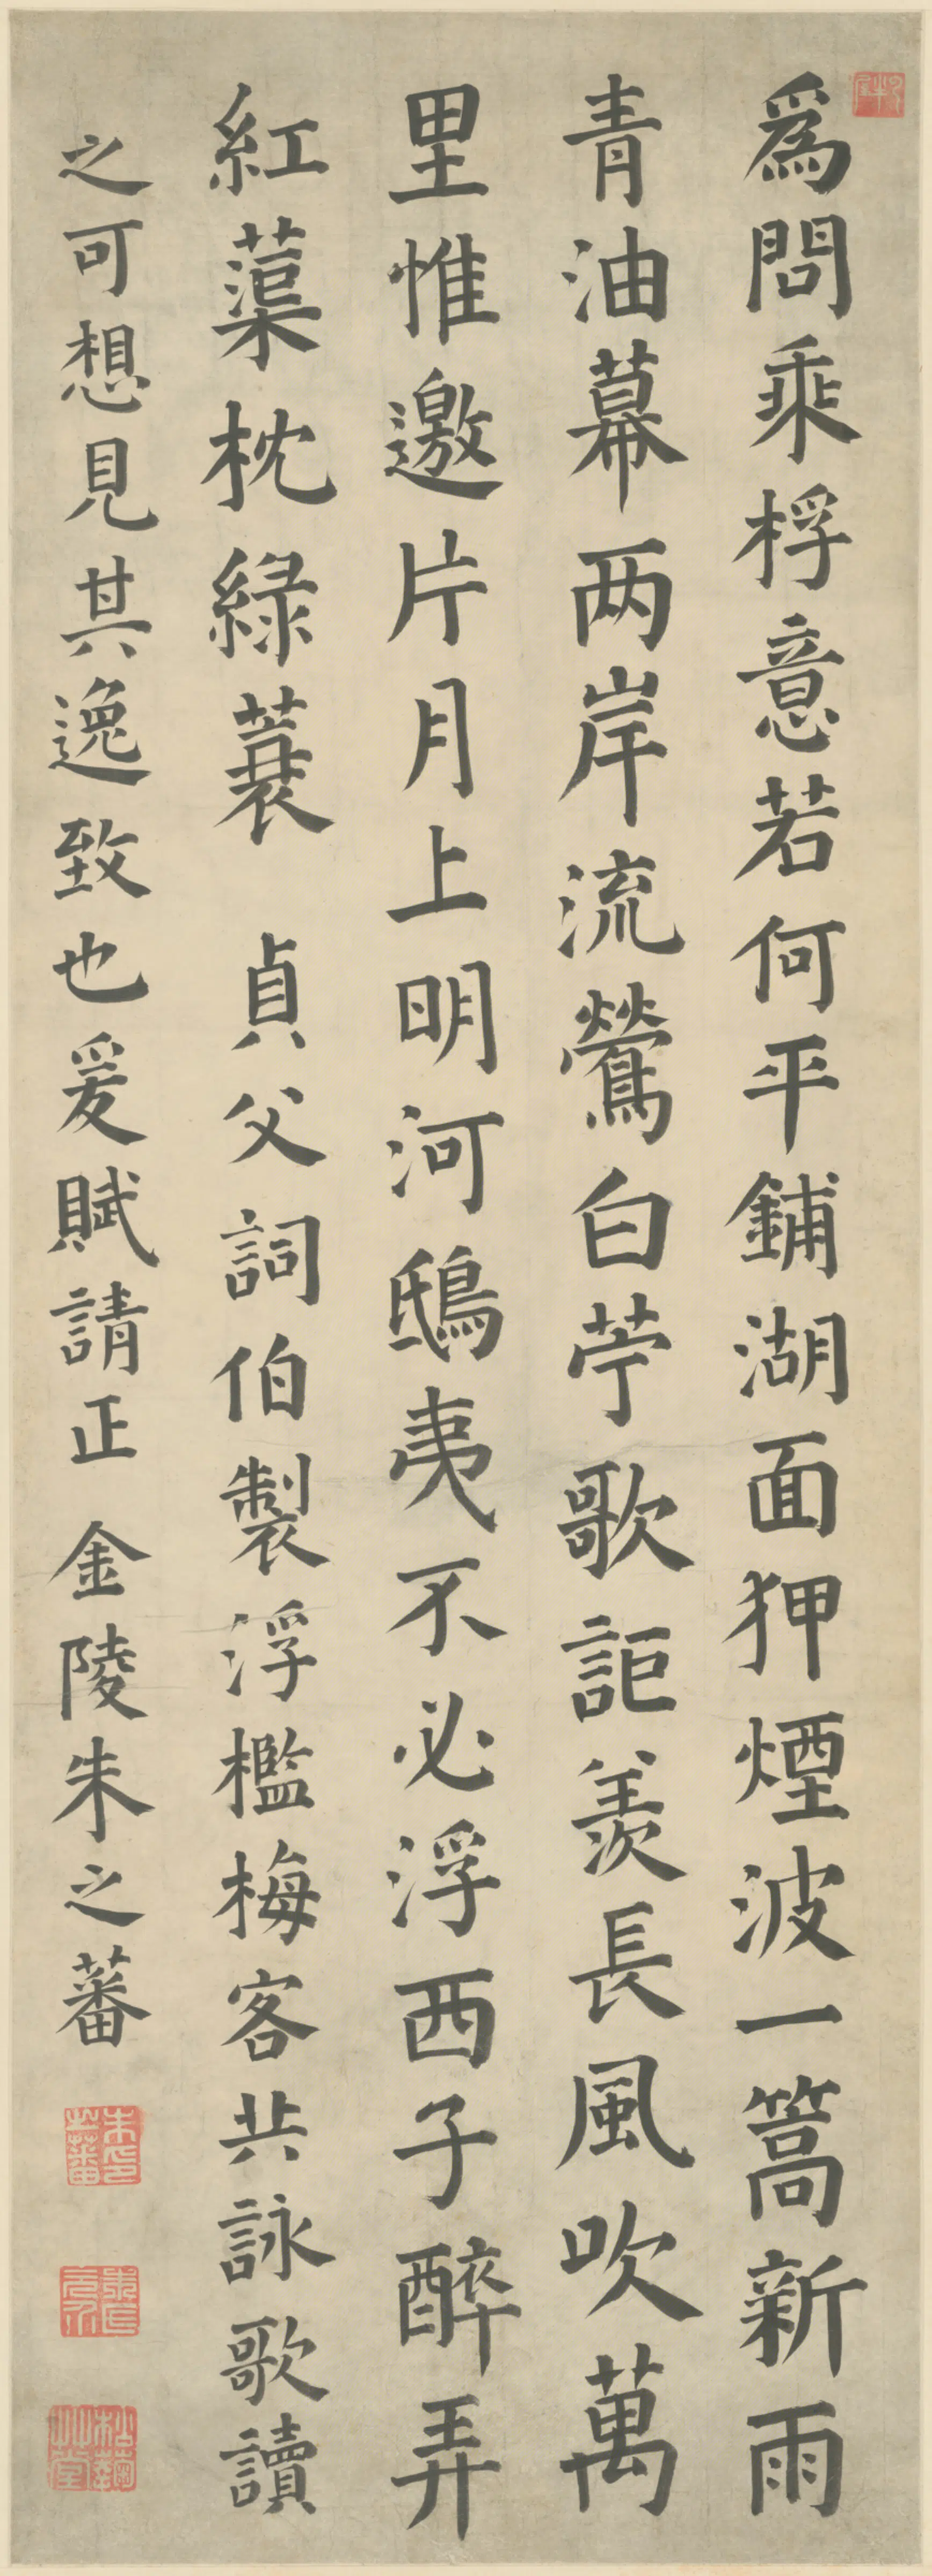 爲問乘桴意若何平鋪湖面狎煙波一篙新雨
青油幕两岸流鶯白苧歌詎羨長風吹萬
里惟邀片月上明河鴟夷不必浮西子醉弄
紅蕖枕綠蓑 貞父詞伯製浮檻梅客共詠歌讀
之可想見其逸致也爰賦請正 金陵朱之蕃
朱之蕃印